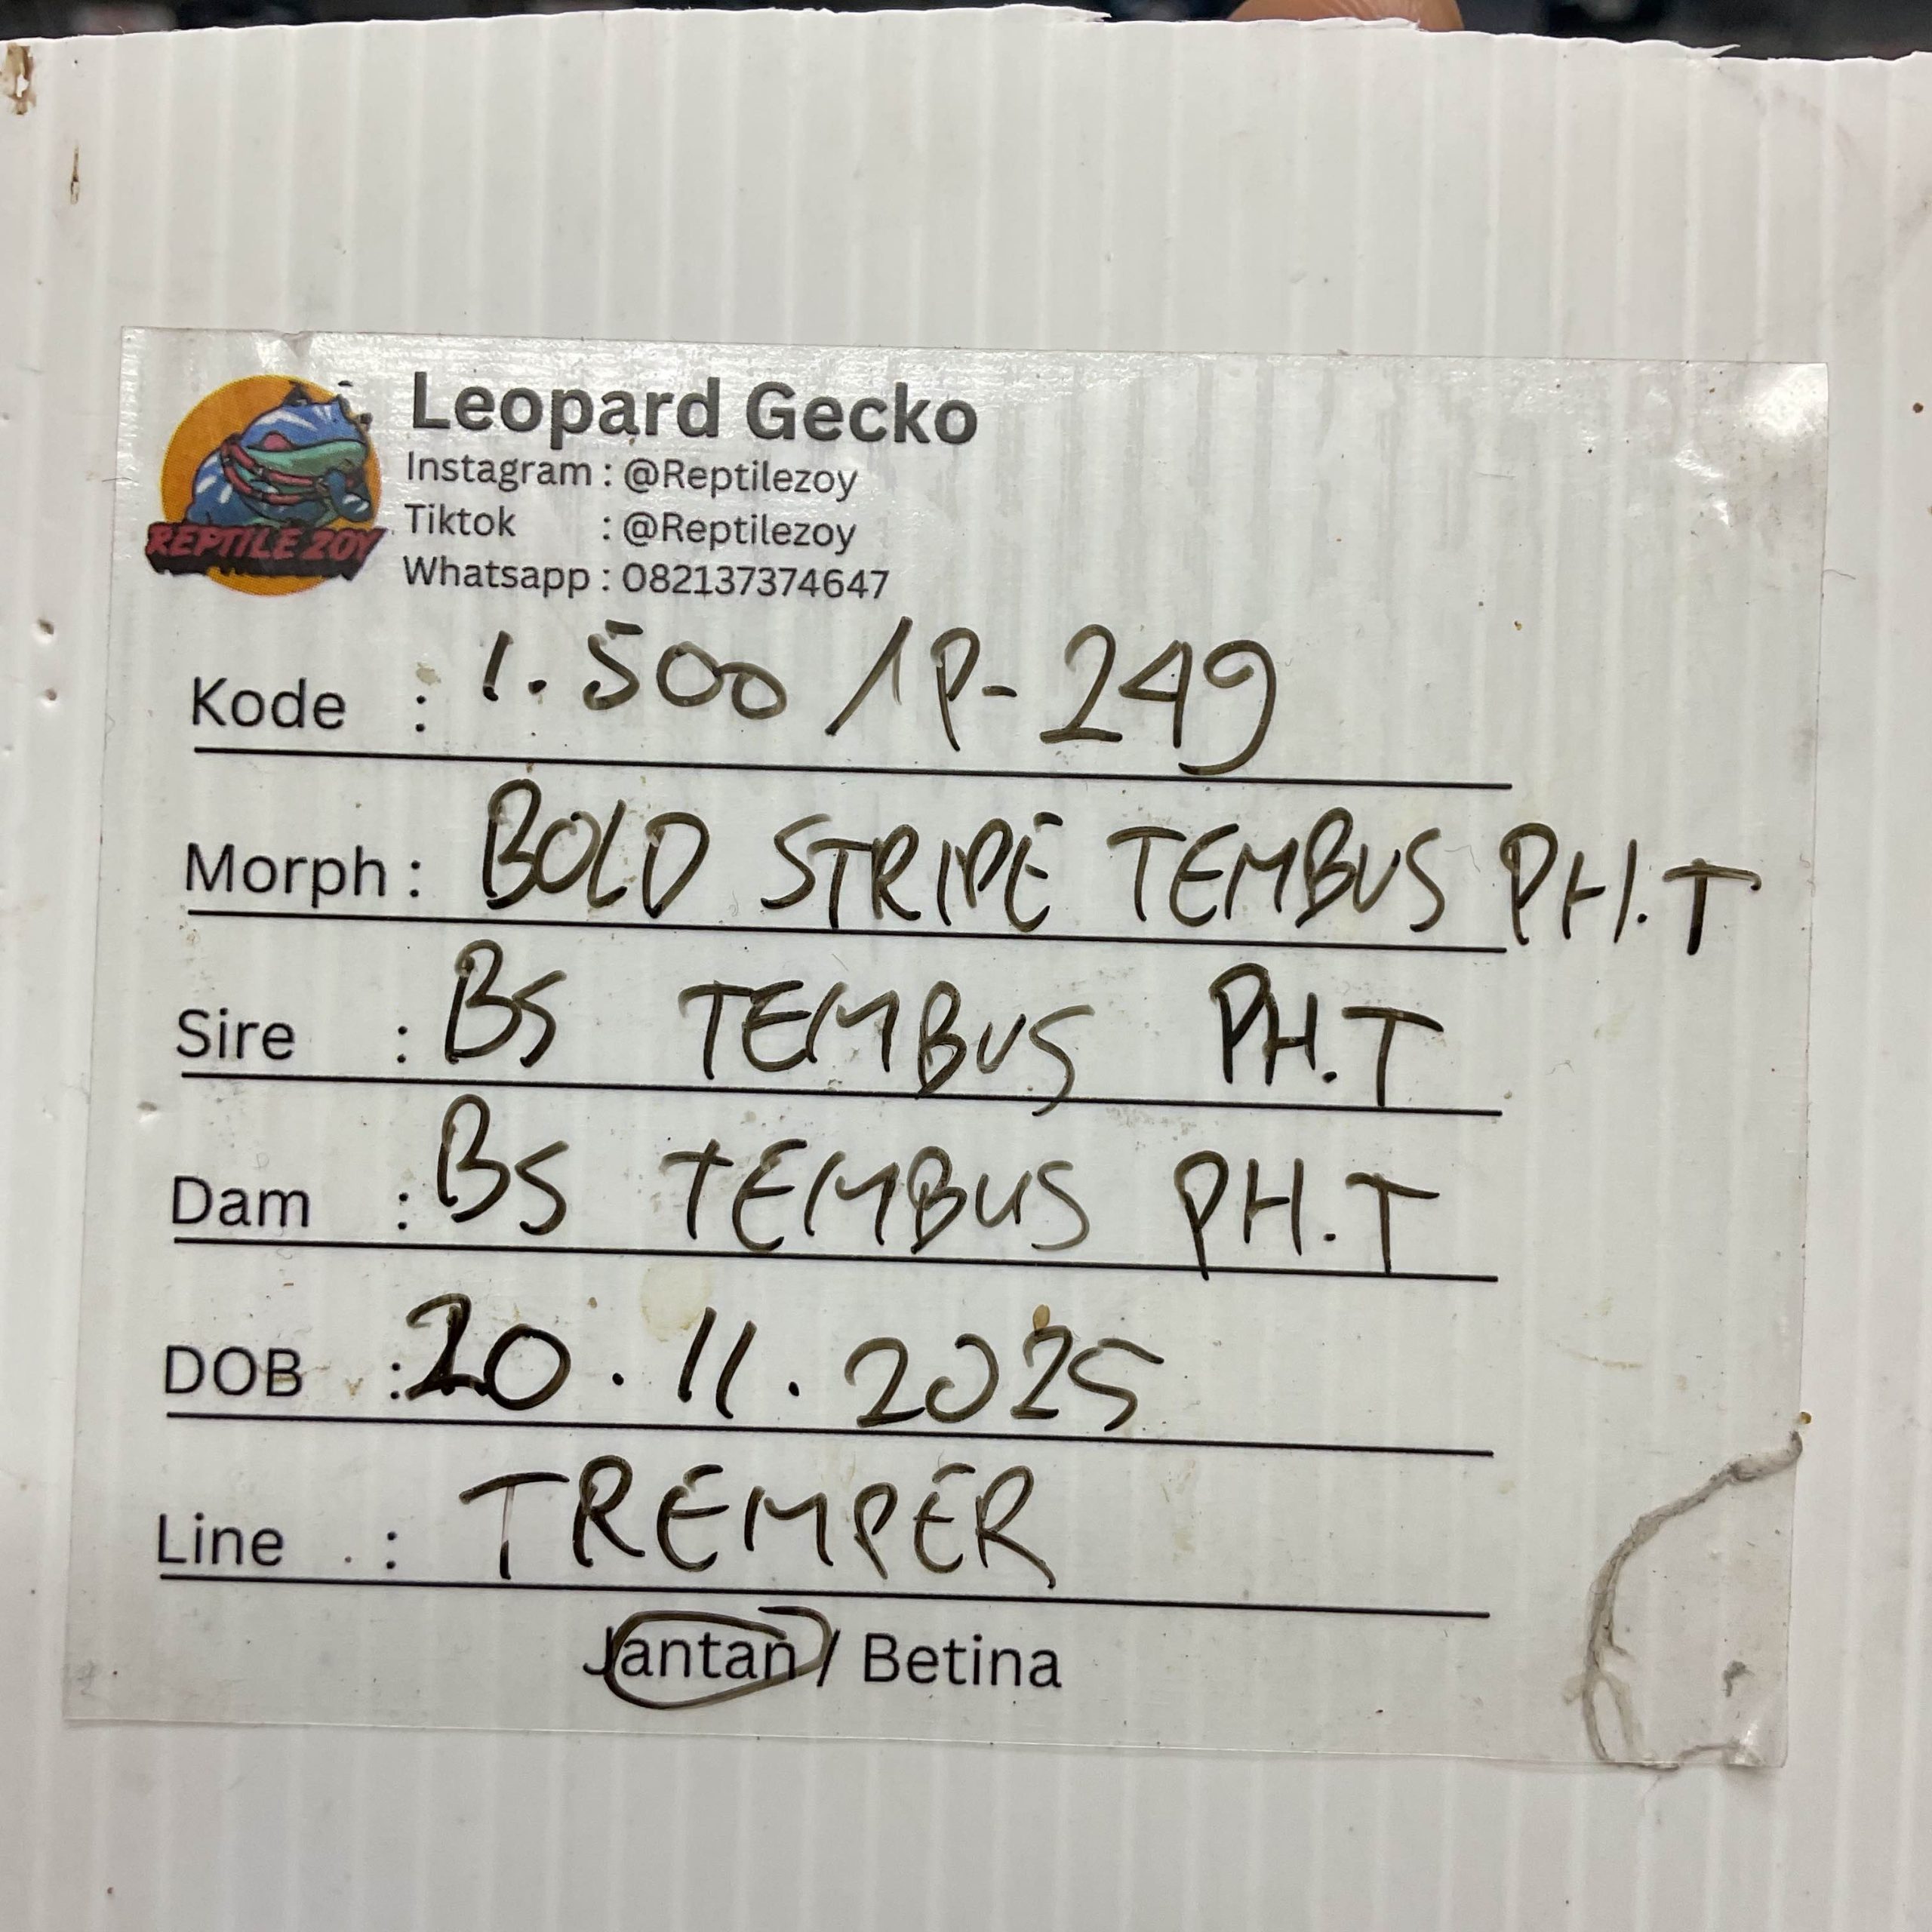 REPTILE ZOY
Leopard Gecko
Instagram : @Reptilezoy
Tiktok : @Reptilezoy
Whatsapp : 082137374647
Kode : 1.500 / P-249
Morph : BOLD STRIPE TEMBUS PH.T
Sire : BS TEMBUS PH.T
Dam : BS TEMBUS PH.T
DOB : 20.11.2025
Line : TREMPER
Jantan / Betina